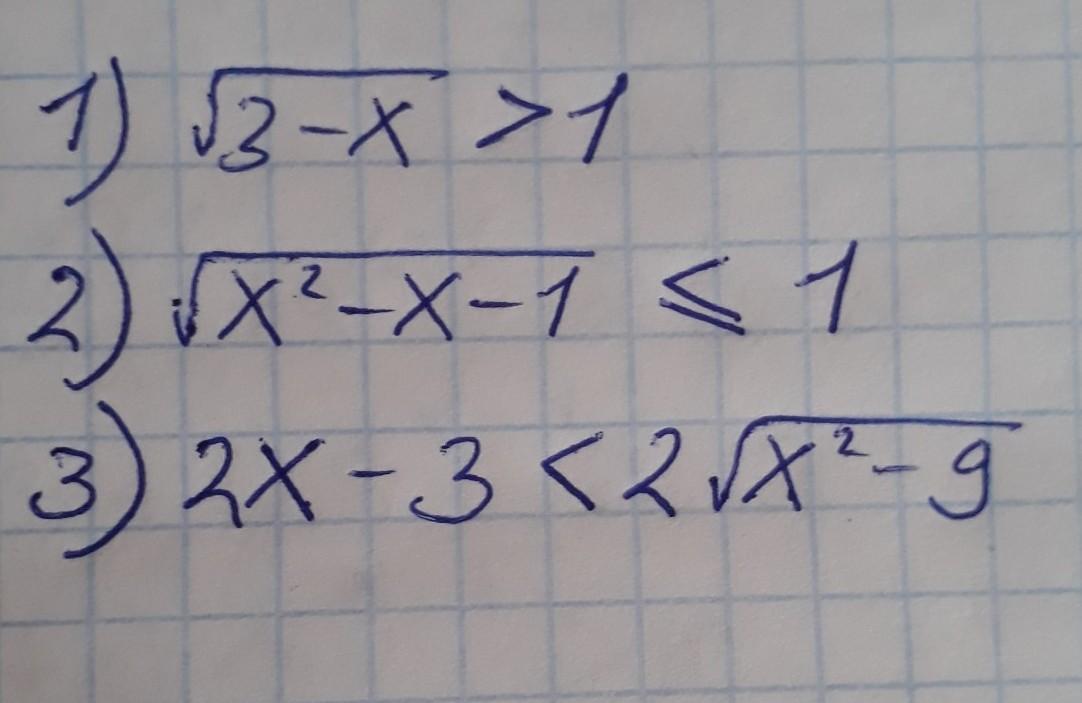 1) √3-x > 1
2) √x²-x-1 ⩽ 1
3) 2x-3 < 2√x²-9